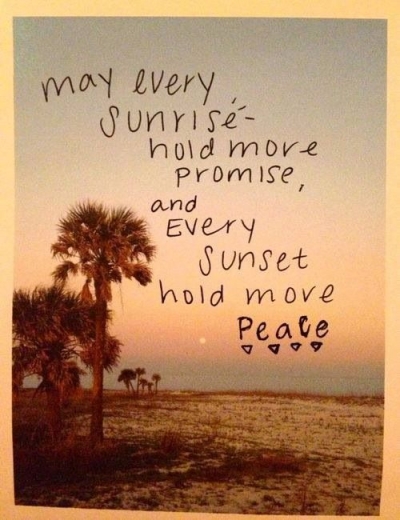 may every
sunrise
hold more
promise,
and
Every
sunset
hold more
Peace